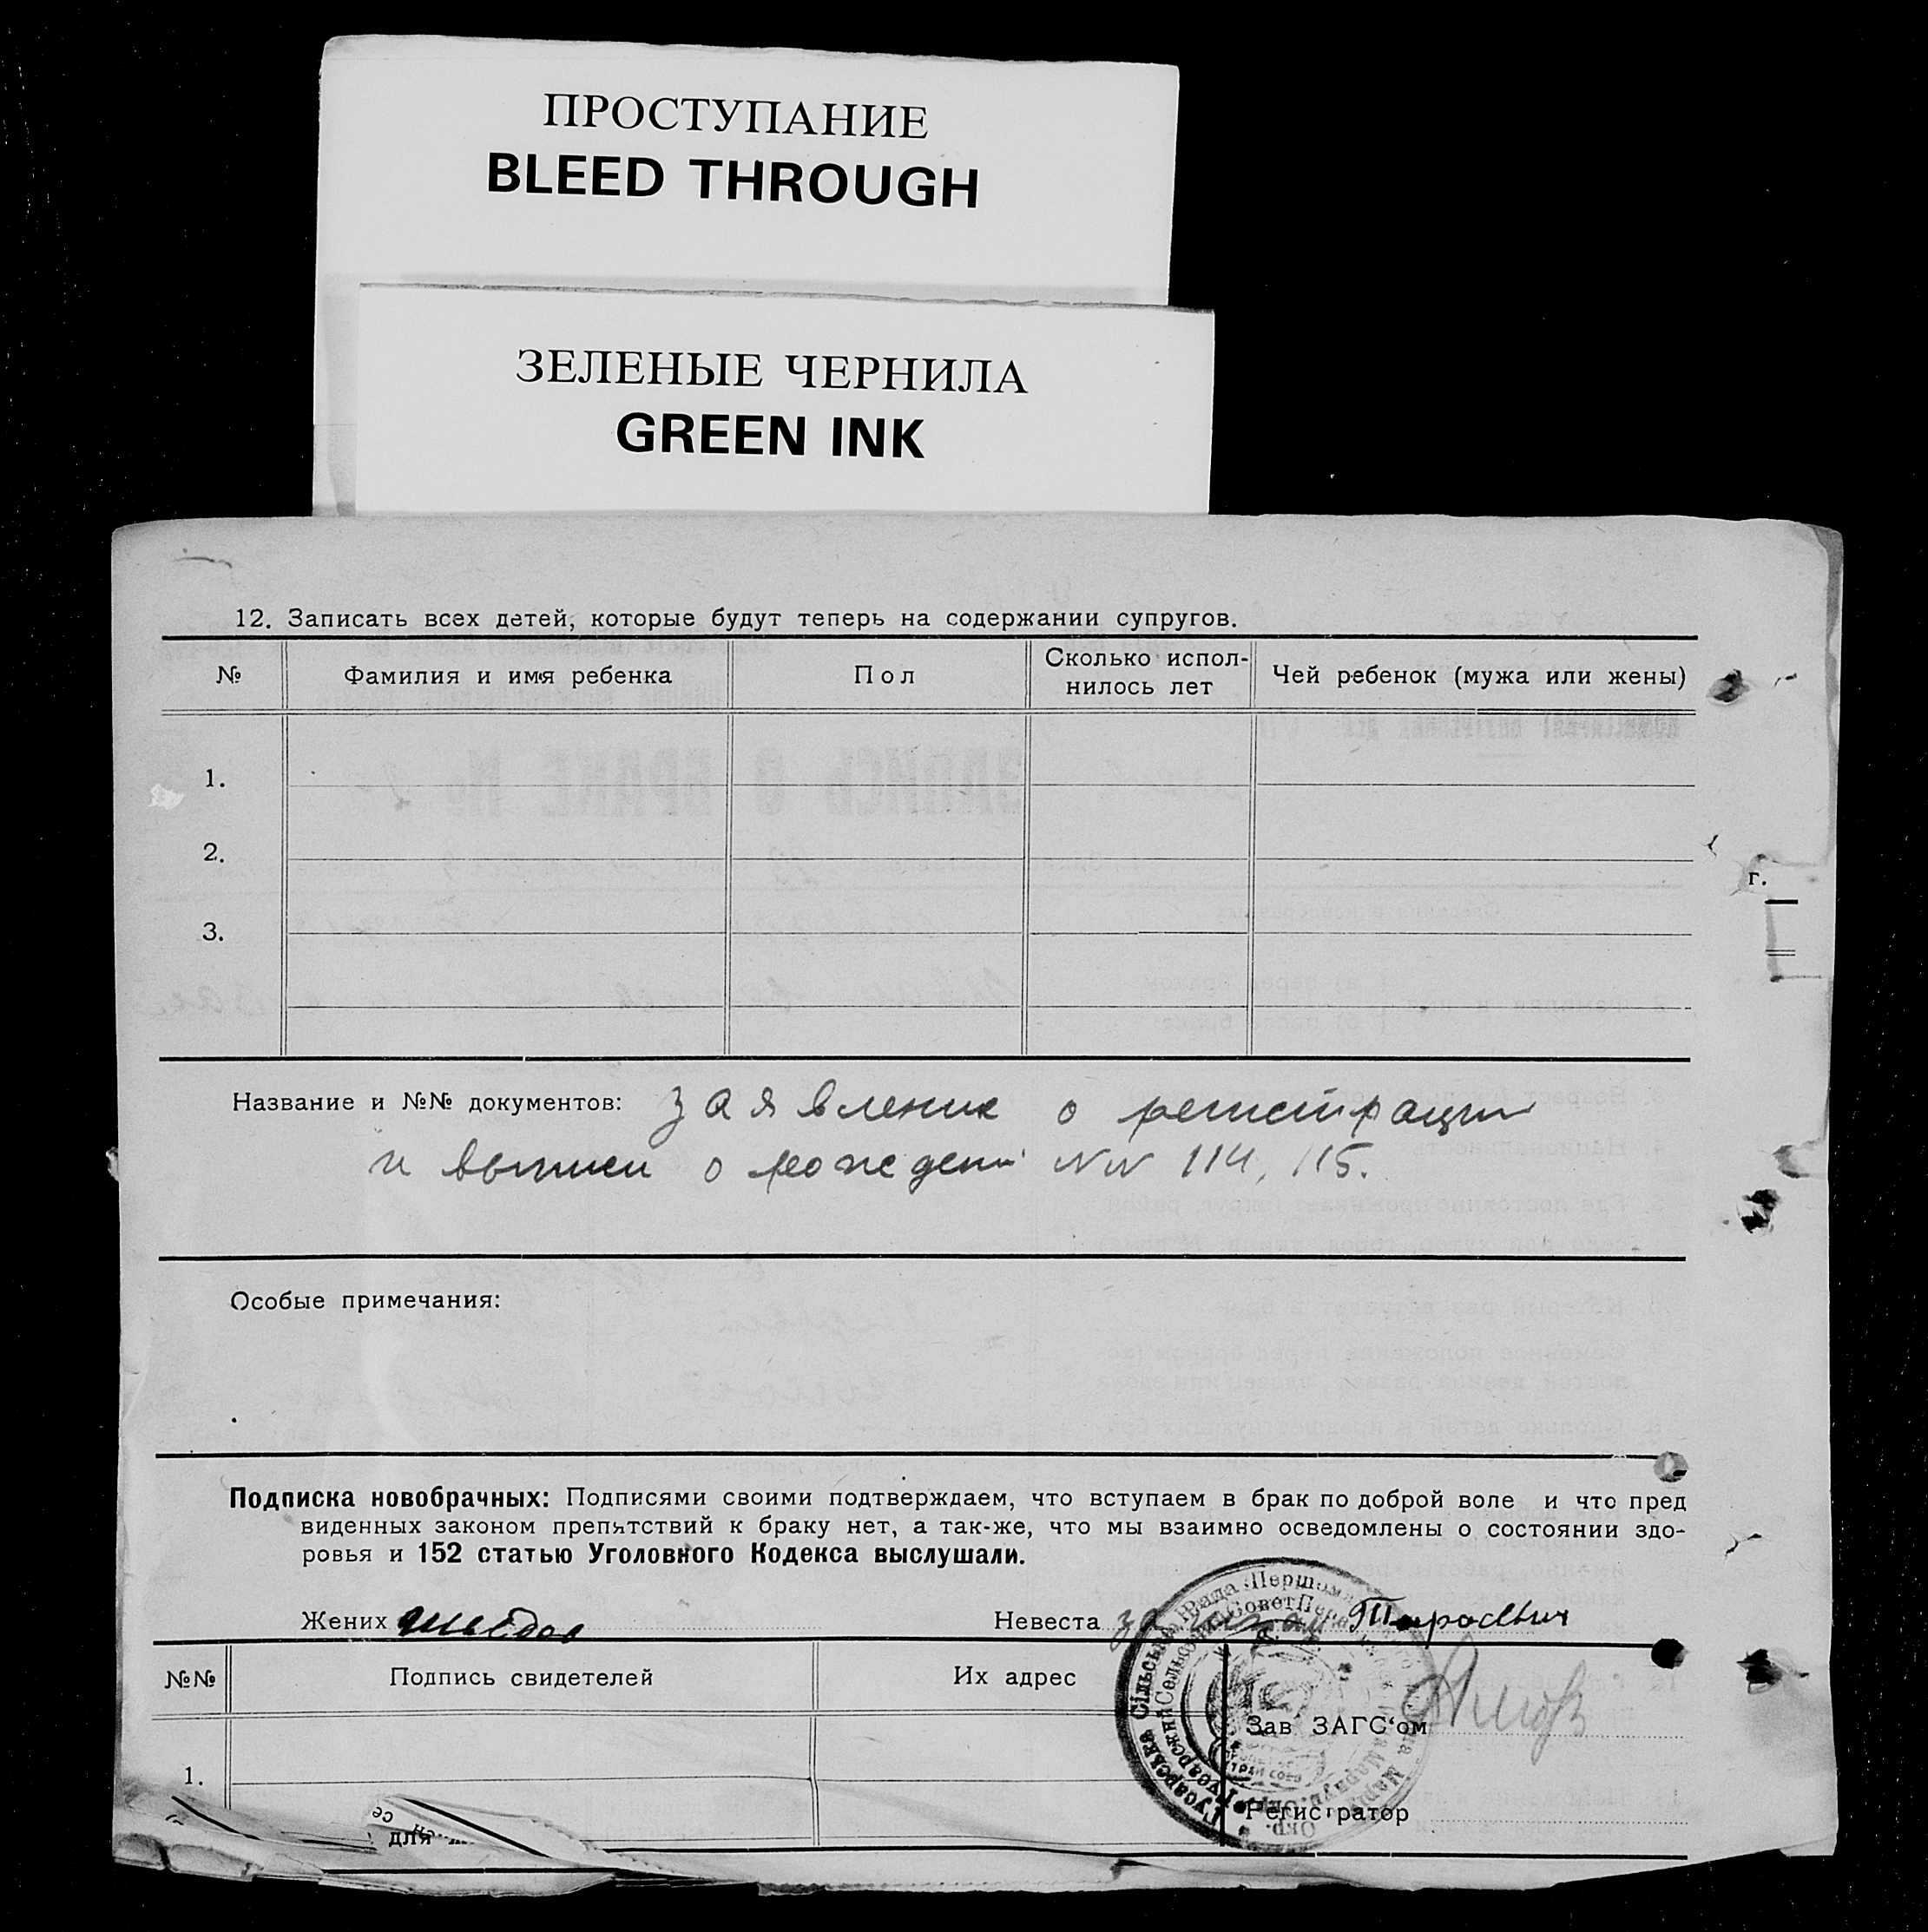 ПРОСТУПАНИЕ
BLEED THROUGH
ЗЕЛЕНЫЕ ЧЕРНИЛА
GREEN INK
12. Записать всех детей, которые будут теперь на содержании супругов.
№ Фамилия и имя ребенка Пол Сколько испол-нилось лет Чей ребенок (мужа или жены)
1.
2.
г.
3.
Название и №№ документов: заявление о регистрации
и выписи о рождени NN 114, 115.
Особые примечания:
Подписка новобрачных: Подписями своими подтверждаем, что вступаем в брак по доброй воле и что пред
виденных законом препятствий к браку нет, а так-же, что мы взаимно осведомлены о состоянии здо-
ровья и 152 статью Уголовного Кодекса выслушали.
Жених Невеста
№№ Подпись свидетелей Их адрес
Зав ЗАГС'ом
1.
Регистратор
для